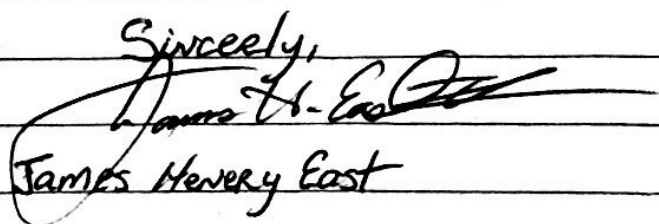 Sincerely,
James H. East
James Henery East